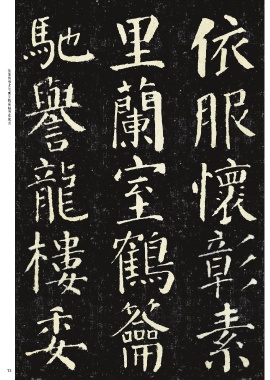 依服懷彰素
里蘭室鶴籥
馳譽龍樓委